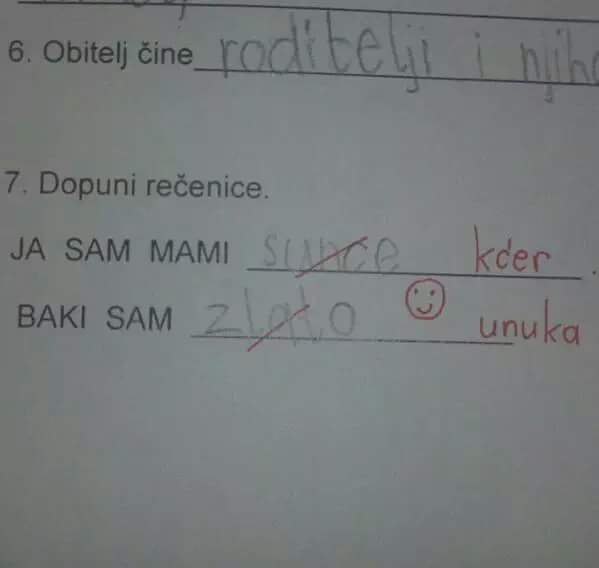 6. Obitelj čine roditelji i njiho
7. Dopuni rečenice.
JA SAM MAMI sunce kćer .
BAKI SAM zlato unuka